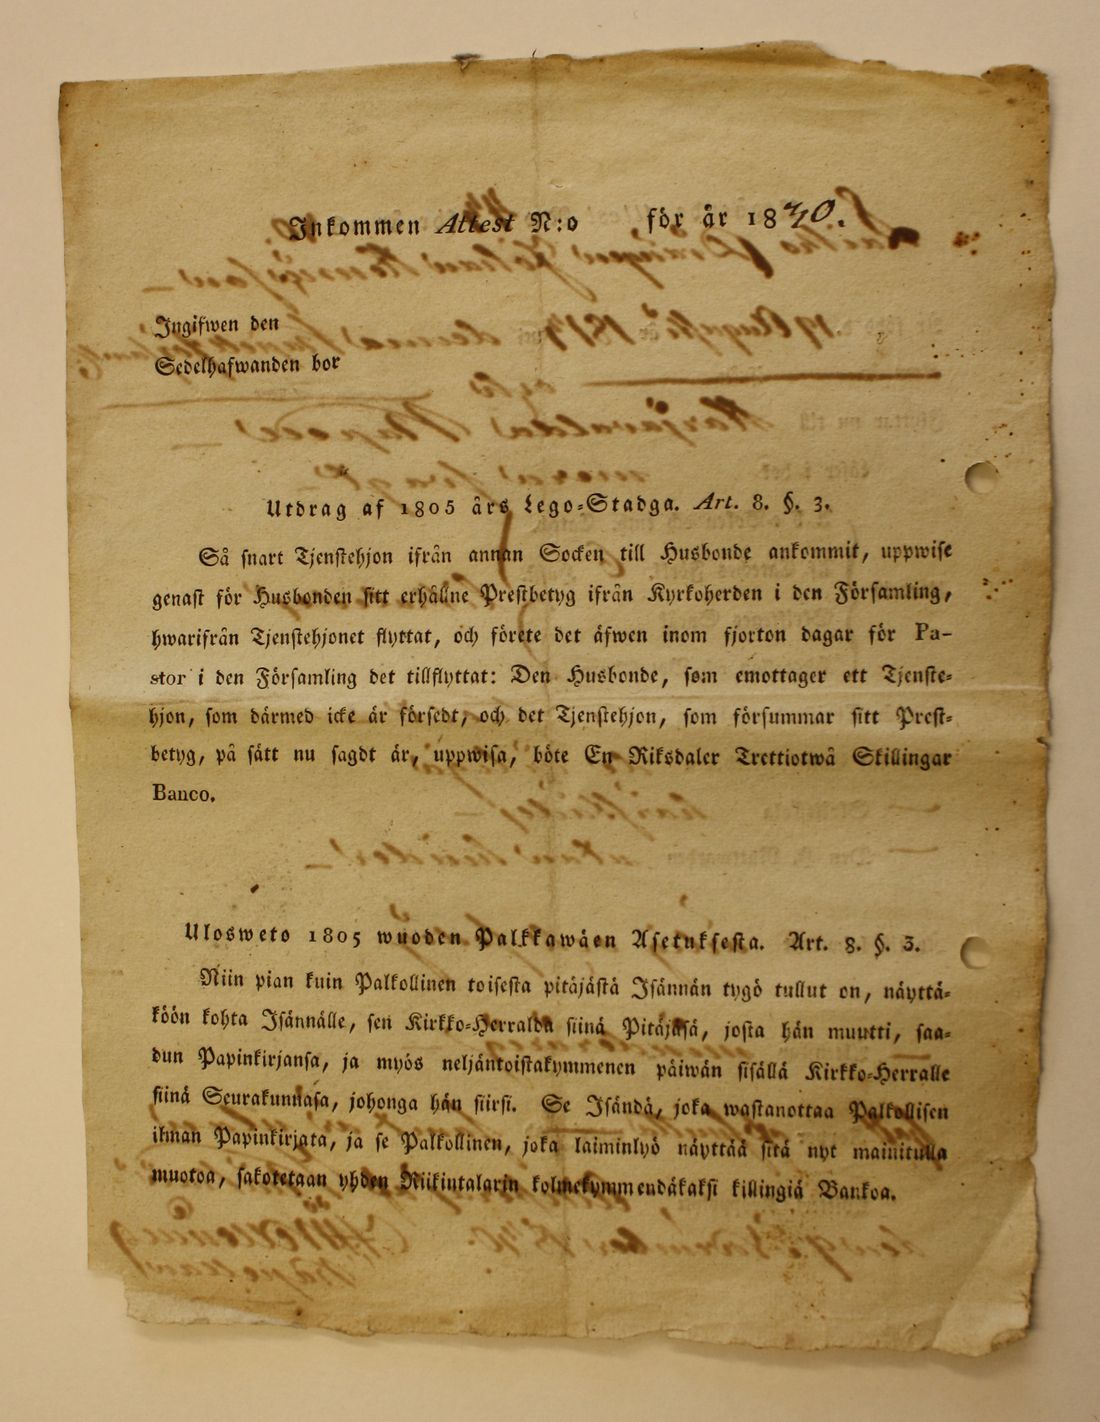 Inkommen Attest N:o för år 1840.
Ingifwen den
Sedelhafwanden bor
Utdrag af 1805 års Lego-Stadga. Art. 8. §. 3.
Så snart Tjenstehjon ifrån annan Socken till Husbonde ankommit, uppwise
genast för Husbonden sitt erhållne Prestbetyg ifrån Kyrkoherden i den Församling,
hwarifrån Tjenstehjonet flyttat, och förete det äfwen inom fjorton dagar för Pa-
stor i den Församling det tillflyttat: Den Husbonde, som emottager ett Tjenste-
hjon, som därmed icke är försedt, och det Tjenstehjon, som försummar sitt Prest-
betyg, på sätt nu sagdt är, uppwisa, böte En Riksdaler Trettiotwå Skillingar
Banco.
Ulosweto 1805 wuoden Palkkawäen Asetuksesta. Art. 8. §. 3.
Niin pian kuin Palkollinen toisesta pitäjästä Isännän tygö tullut on, näyttä-
köön kohta Isännälle, sen Kirkko-Herralda siinä Pitäjäsä, josta hän muutti, saa-
dun Papinkirjansa, ja myös neljäntoistakymmenen päiwän sisällä Kirkko-Herralle
siinä Seurakunnasa, johonga hän siirsi. Se Isändä, joka wastanottaa Palkollisen
ilman Papinkirjata, ja se Palkollinen, joka laiminlyö näyttää sitä nyt mainitulla
muotoa, sakotetaan yhden Riikintalarin kolmekymmendäkaksi killingiä Bankoa.